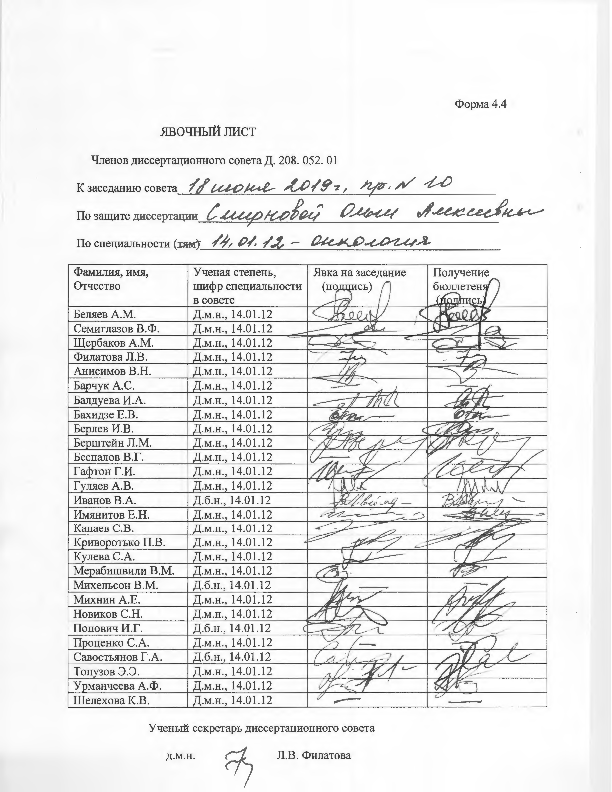 Форма 4.4
ЯВОЧНЫЙ ЛИСТ
Членов диссертационного совета Д. 208. 052. 01
К заседанию совета 18 июня 2019 г., пр. N 10
По защите диссертации Смирновой Ольги Алексеевны
По специальности (тям) 14.01.12 – онкология
Фамилия, имя, Отчество | Ученая степень, шифр специальности в совете | Явка на заседание (подпись) | Получение бюллетеня (подпись)
Беляев А.М. Д.м.н., 14.01.12
Семиглазов В.Ф. Д.м.н., 14.01.12
Щербаков А.М. Д.м.н., 14.01.12
Филатова Л.В. Д.м.н., 14.01.12
Анисимов В.Н. Д.м.н., 14.01.12
Барчук А.С. Д.м.н., 14.01.12
Балдуева И.А. Д.м.н., 14.01.12
Бахидзе Е.В. Д.м.н., 14.01.12
Берлев И.В. Д.м.н., 14.01.12
Берштейн Л.М. Д.м.н., 14.01.12
Беспалов В.Г. Д.м.н., 14.01.12
Гафтон Г.И. Д.м.н., 14.01.12
Гуляев А.В. Д.м.н., 14.01.12
Иванов В.А. Д.б.н., 14.01.12
Имянитов Е.Н. Д.м.н., 14.01.12
Канаев С.В. Д.м.н., 14.01.12
Криворотько П.В. Д.м.н., 14.01.12
Кулева С.А. Д.м.н., 14.01.12
Мерабишвили В.М. Д.м.н., 14.01.12
Михельсон В.М. Д.б.н., 14.01.12
Михнин А.Е. Д.м.н., 14.01.12
Новиков С.Н. Д.м.н., 14.01.12
Попович И.Г. Д.б.н., 14.01.12
Проценко С.А. Д.м.н., 14.01.12
Савостьянов Г.А. Д.б.н., 14.01.12
Топузов Э.Э. Д.м.н., 14.01.12
Урманчеева А.Ф. Д.м.н., 14.01.12
Шелехова К.В. Д.м.н., 14.01.12
Ученый секретарь диссертационного совета
д.м.н. Л.В. Филатова